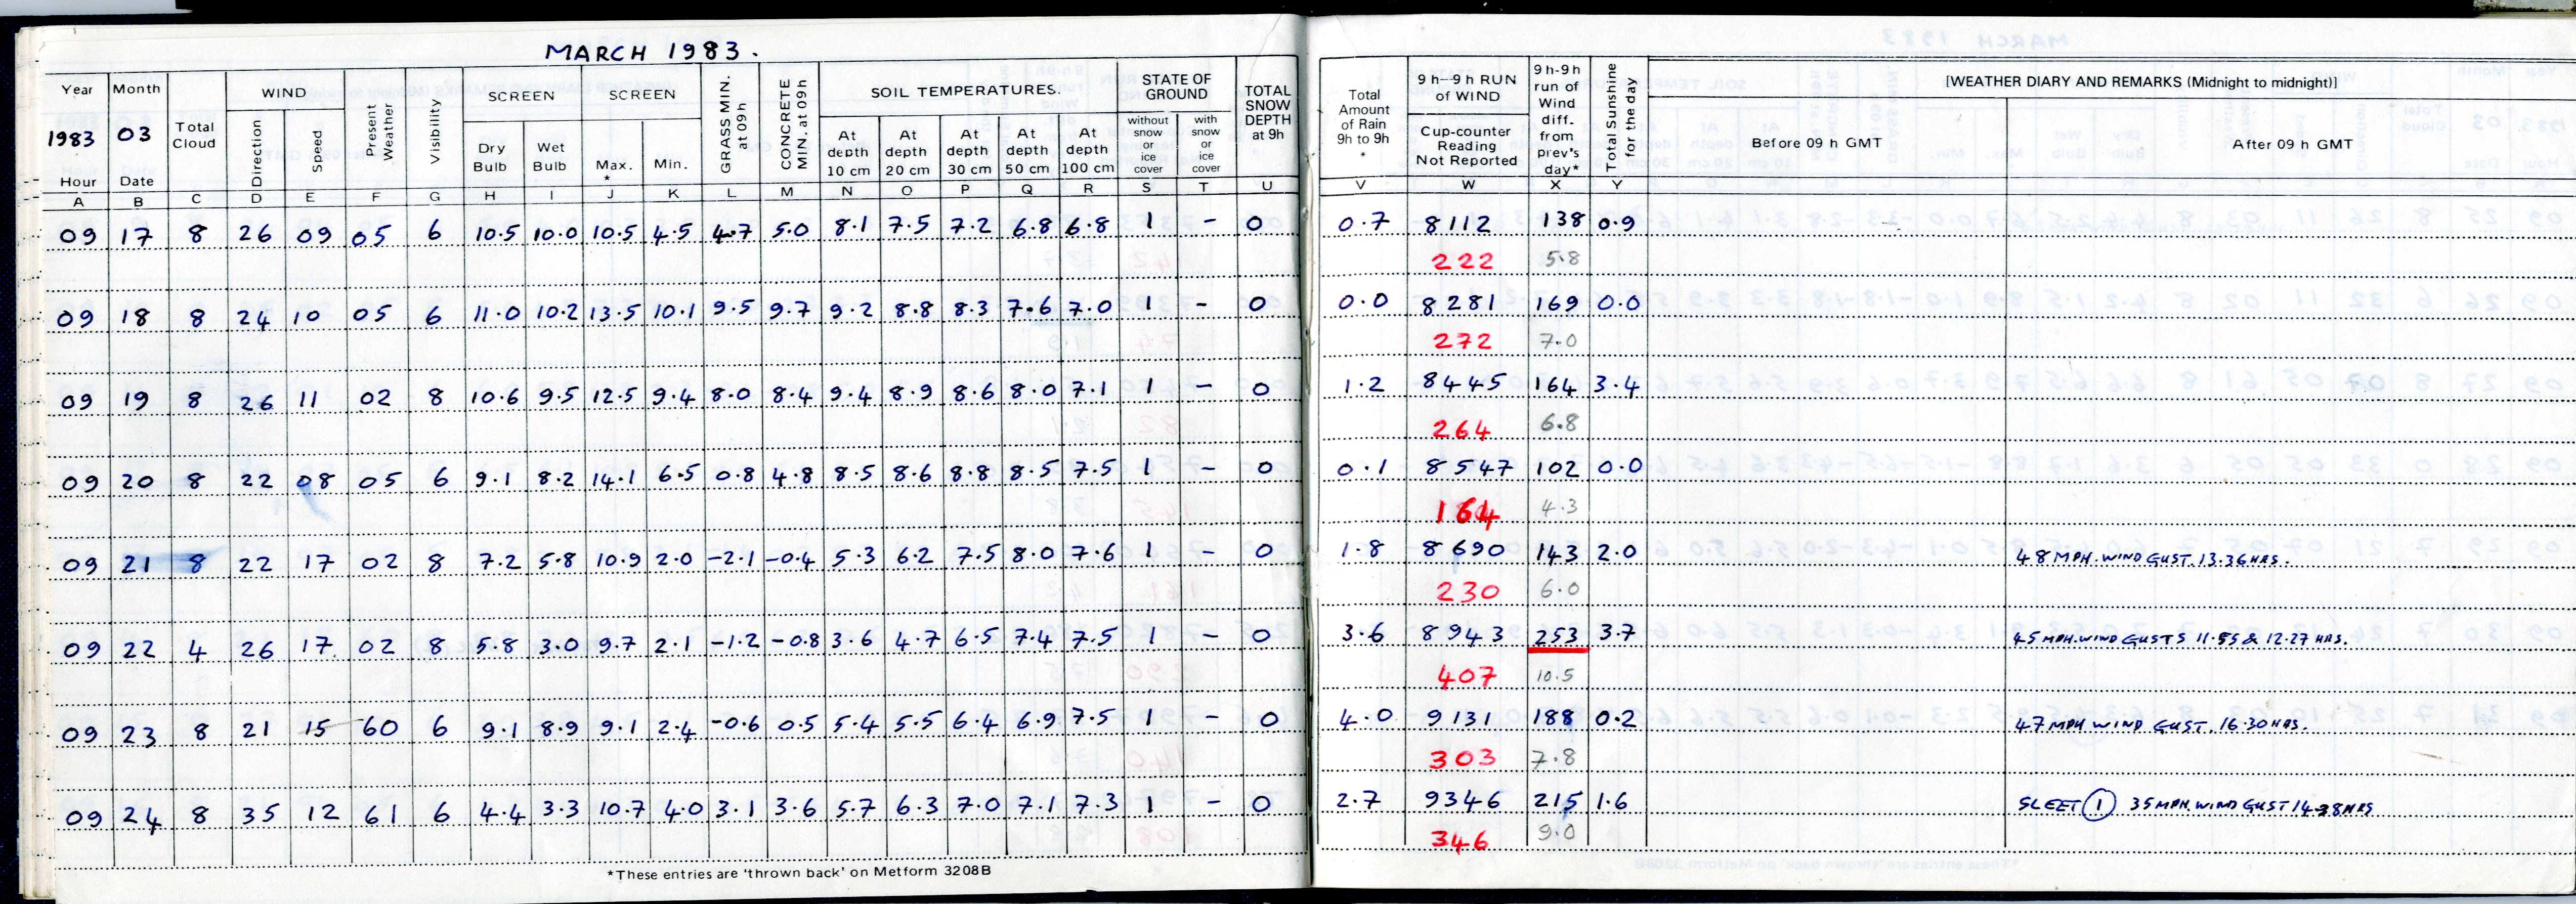 MARCH 1983.
Year Month WIND SCREEN SCREEN SOIL TEMPERATURES. STATE OF GROUND
1983 03 Total Cloud Direction Speed Present Weather Visibility Dry Bulb Wet Bulb Max. * Min. GRASS MIN. at 09h CONCRETE MIN. at 09h At depth 10 cm At depth 20 cm At depth 30 cm At depth 50 cm At depth 100 cm without snow or ice cover with snow or ice cover TOTAL SNOW DEPTH at 9h
Hour Date
Total Amount of Rain 9h to 9h * 9 h–9 h RUN of WIND Cup-counter Reading Not Reported 9 h-9h run of Wind diff. from prev's day* Total Sunshine for the day [WEATHER DIARY AND REMARKS (Midnight to midnight)]
Before 09 h GMT After 09 h GMT
A B C D E F G H I J K L M N O P Q R S T U V W X Y
09 17 8 26 09 05 6 10.5 10.0 10.5 4.5 4.7 5.0 8.1 7.5 7.2 6.8 6.8 1 – 0 0.7 8112 138 0.9
222 5.8
09 18 8 24 10 05 6 11.0 10.2 13.5 10.1 9.5 9.7 9.2 8.8 8.3 7.6 7.0 1 – 0 0.0 8281 169 0.0
272 7.0
09 19 8 26 11 02 8 10.6 9.5 12.5 9.4 8.0 8.4 9.4 8.9 8.6 8.0 7.1 1 – 0 1.2 8445 164 3.4
264 6.8
09 20 8 22 08 05 6 9.1 8.2 14.1 6.5 0.8 4.8 8.5 8.6 8.8 8.5 7.5 1 – 0 0.1 8547 102 0.0
164 4.3
09 21 8 22 17 02 8 7.2 5.8 10.9 2.0 -2.1 -0.4 5.3 6.2 7.5 8.0 7.6 1 – 0 1.8 8690 143 2.0 48 MPH. WIND GUST. 13.36 HRS.
230 6.0
09 22 4 26 17 02 8 5.8 3.0 9.7 2.1 -1.2 -0.8 3.6 4.7 6.5 7.4 7.5 1 – 0 3.6 8943 253 3.7 45 MPH. WIND GUSTS 11.55 & 12.27 HRS.
407 10.5
09 23 8 21 15 60 6 9.1 8.9 9.1 2.4 -0.6 0.5 5.4 5.5 6.4 6.9 7.5 1 – 0 4.0 9131 188 0.2 47 MPH WIND GUST. 16.30 HRS.
303 7.8
09 24 8 35 12 61 6 4.4 3.3 10.7 4.0 3.1 3.6 5.7 6.3 7.0 7.1 7.3 1 – 0 2.7 9346 215 1.6 SLEET 1 35 MPH. WIND GUST 14.38 HRS
346 9.0
*These entries are 'thrown back' on Metform 3208B